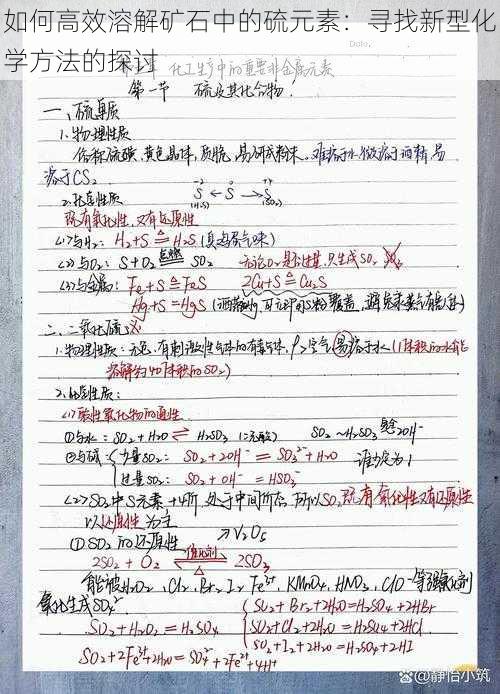 如何高效溶解矿石中的硫元素：寻找新型化
学方法的探讨
第五章 化工生产中的重要非金属元素
第一节 硫及其化合物
一、硫单质
1.物理性质
俗称硫磺,黄色晶体,质脆,易研成粉末,难溶于水,微溶于酒精,易
溶于CS₂
2.化学性质
S⁻² ← S⁰ → S⁺⁴
(H₂S) (SO₂)
既有氧化性,又有还原性
(1)与H₂: H₂+S ≜ H₂S (臭鸡蛋气味)
(2)与O₂: S+O₂ 点燃 SO₂ 无论O₂是否过量,只生成SO₂
(3)与金属: Fe+S ≜ FeS 2Cu+S ≜ Cu₂S
Hg+S=HgS (洒落的,可立即用S粉覆盖,避免汞蒸气有毒)
二、二氧化硫
1.物理性质:无色,有刺激性气味的有毒气体,ρ>空气,易溶于水(1体积的水能
溶解约40体积的SO₂)
2.化学性质:
(1)酸性氧化物的通性
①与水: SO₂+H₂O ⇌ H₂SO₃ (二元酸) SO₂~H₂SO₃ 2OH⁻
②与碱: 少量SO₂: SO₂+2OH⁻=SO₃²⁻+H₂O 谁少定为1
过量SO₂: SO₂+OH⁻=HSO₃⁻
(2)SO₂中S元素+4价,处于中间价态,所以SO₂既有氧化性又有还原性
以还原性为主
①SO₂的还原性 V₂O₅
2SO₂+O₂ 催化剂 ⇌ 2SO₃
能被H₂O₂,Cl₂,Br₂,I₂,Fe³⁺,KMnO₄,HNO₃,ClO⁻等强氧化剂
氧化生成SO₄²⁻
SO₂+Br₂+2H₂O=H₂SO₄+2HBr
SO₂+H₂O₂=H₂SO₄ SO₂+Cl₂+2H₂O=H₂SO₄+2HCl
SO₂+I₂+2H₂O=H₂SO₄+2HI
SO₂+2Fe³⁺+2H₂O=SO₄²⁻+2Fe²⁺+4H⁺
Bai@静怡小筑